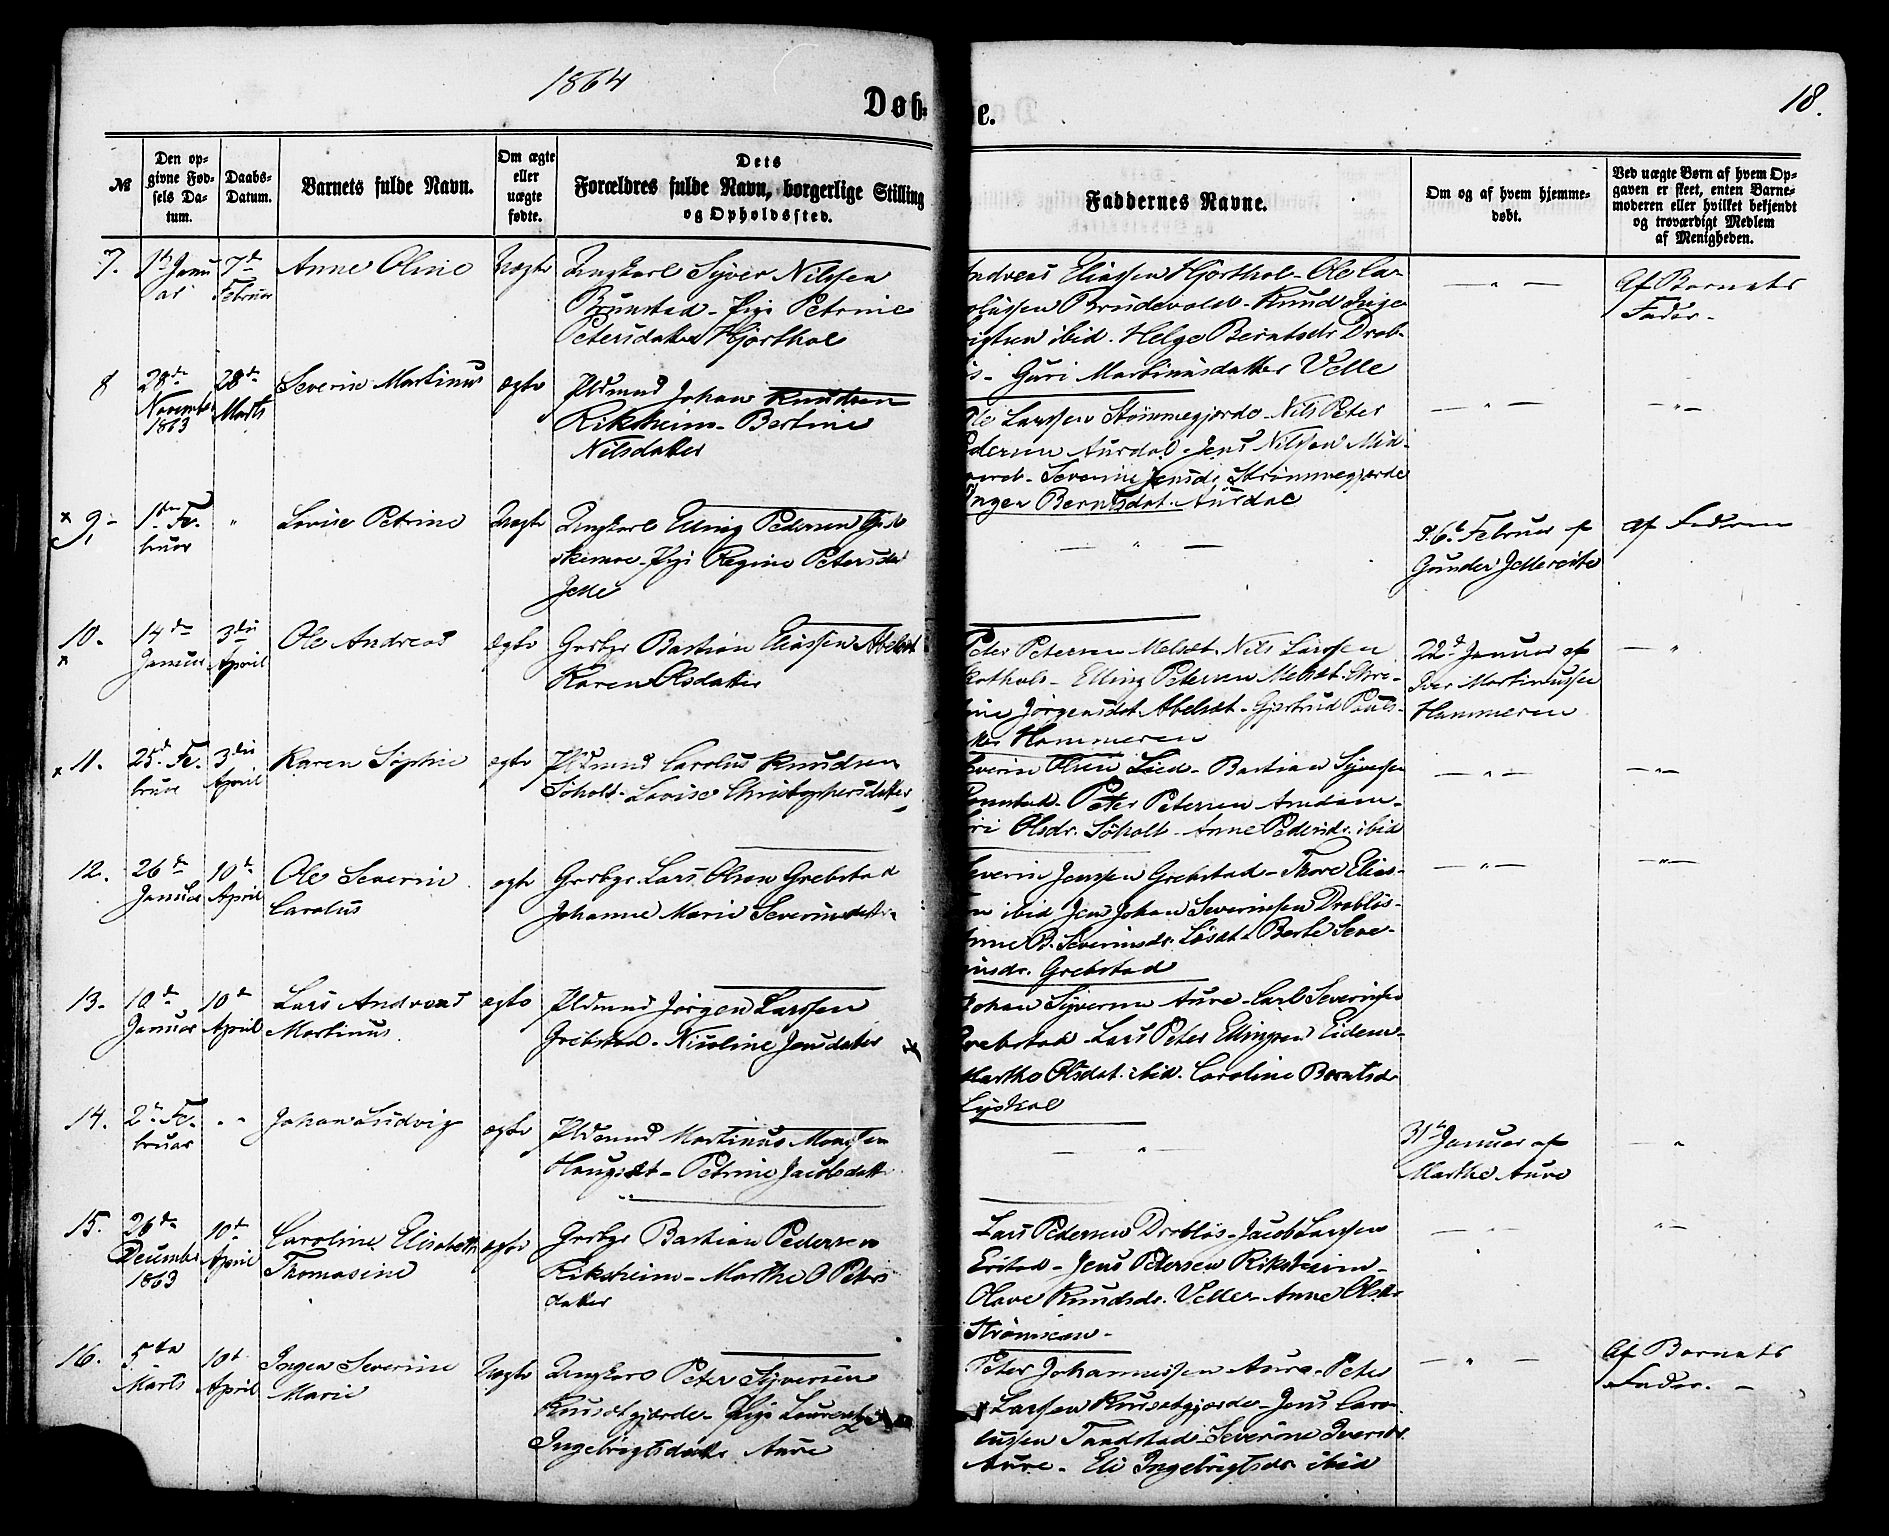 1864
Døb-
e.
18.
№
Den op-
givne Fød-
sels Da-
tum.
Daabs-
Datum.
Barnets fulde Navn.
Om ægte
eller
uægte
fødte.
Dets
Forældres fulde Navn, borgerlige Stilling
og Opholdssted.
Faddernes Navne.
Om og af hvem hjemme-
døbt.
Ved uægte Børn af hvem Op-
gaven er skeet, enten Barne-
moderen eller hvilket bekjendt
og troværdigt Medlem
af Menigheden.
7.
Janu
ar
7de
Februar
Anne Oline
Uægte
Ungkarl Syver Nilssen
Brunstad - Pige Petrine
Petersdatter Hjorthol
Andreas Eliassen Hjorthol - Ole Ca-
rolussen Brudevold - Knud Inge-
brigtsen ibid. Helge Berntsdr Drob-
- Guri Martinusdatter Velle
— " —
Af Barnets
Fader -
8
28de
Novembr
1863
28de
Marts
Severin Martinus
ægte
Pldmand Johan Knudsen
Riksheim - Bertine
Nilsdatter
Ole Larssen Strømmegjerde - Nils Peter
Pedersen Aurdal - Jens Nilssen
Severine Jensd. Strømmegjerde
Inger Berntsdat. Aurdal
— " —
— " —
x 9.
1ste Fe-
bruar
"
Lovise Petrine
Uægte
Ungkarl Elling Pedersen
Pige Regine Petersdat
Jelle
— " —
d. 6te Februar af
Gunder Jelle
af Faderen
10.
x
14de
Januar
3die
April
Ole Andreas
ægte
Grbgr Bastian Eliassen Abelset
Karen Olsdatter
Peter Petersen Melset - Nils Larssen
Elling Petersen Melset - 
Jørgensdat. Abelset - Gjertrud Pauls-
Hammeren
22de Januar af
Iver Martinussen
Hammeren
— "
x 11.
25de Fe-
bruar
3die
April
Karen Sophie
ægte
Pldmand Carolus Knudsen
Søholt - Lovise Christophersdatter
Severin Olsen Lied - Bastian Syversen
Peter Petersen Amdam -
Olsdr. Søholt - Anne Pedersdr. ibid
— " —
— " —
12.
26de
Januar
10de
April
Ole Severin
Carolus
ægte
Grbgr. Lars Olsen Grebstad
Johanne Marie Severinsdatter
Severin Jensen Grebstad - Thore Elias-
sen ibid Jens Johan Severinsen Drabløs -
Anne B. Severinsdr. Løset - Berte Seve-
rinsdr. Grebstad
— " —
— " —
13.
10de
Januar
10de
April
Lars Andreas
Martinus
ægte
Pldmand Jørgen Larssen
Grebstad - Nicoline Jensdatter
Johan Syversen Aure - Carl Severinsen
Grebstad - Lars Peter Ellingsen Eidem -
Martha Olsdat. ibid. Caroline Berntsdr
Lyshol
14.
2de Fe-
bruar
" "
Johan Ludvig
ægte
Pldmand Martinus Monssen
Haugset - Petrine Jacobsdatt
"
31te Januar af
Marthe Aure
— "
15.
26de
December
1863
10de
April
Caroline Elisabeth
Thomasine
ægte
Grbgr Bastian Pedersen
Riksheim - Marthe O Peters
datter
Lars Pedersen Drabløs - Jacob Larssen
Erstad - Jens Petersen Riksheim -
Olave Knudsdr. Velle - Anne Olsdr
Strømmen -
16.
5te
Marts
10de
April
Ingen Severine
Marie
Uægte
Ungkarl Peter Syversen
Knusetgjerde - Pige Laurentze
Ingebrigtsdatter Aure
Peter Johannessen Aure - Peter
Larssen Knusetgjerde - Jens Caro-
lussen Tandstad - Severine Iversdr.
Aure - Eli Ingebrigtsdr ibid
— " —
Af Barnets
Fader. -